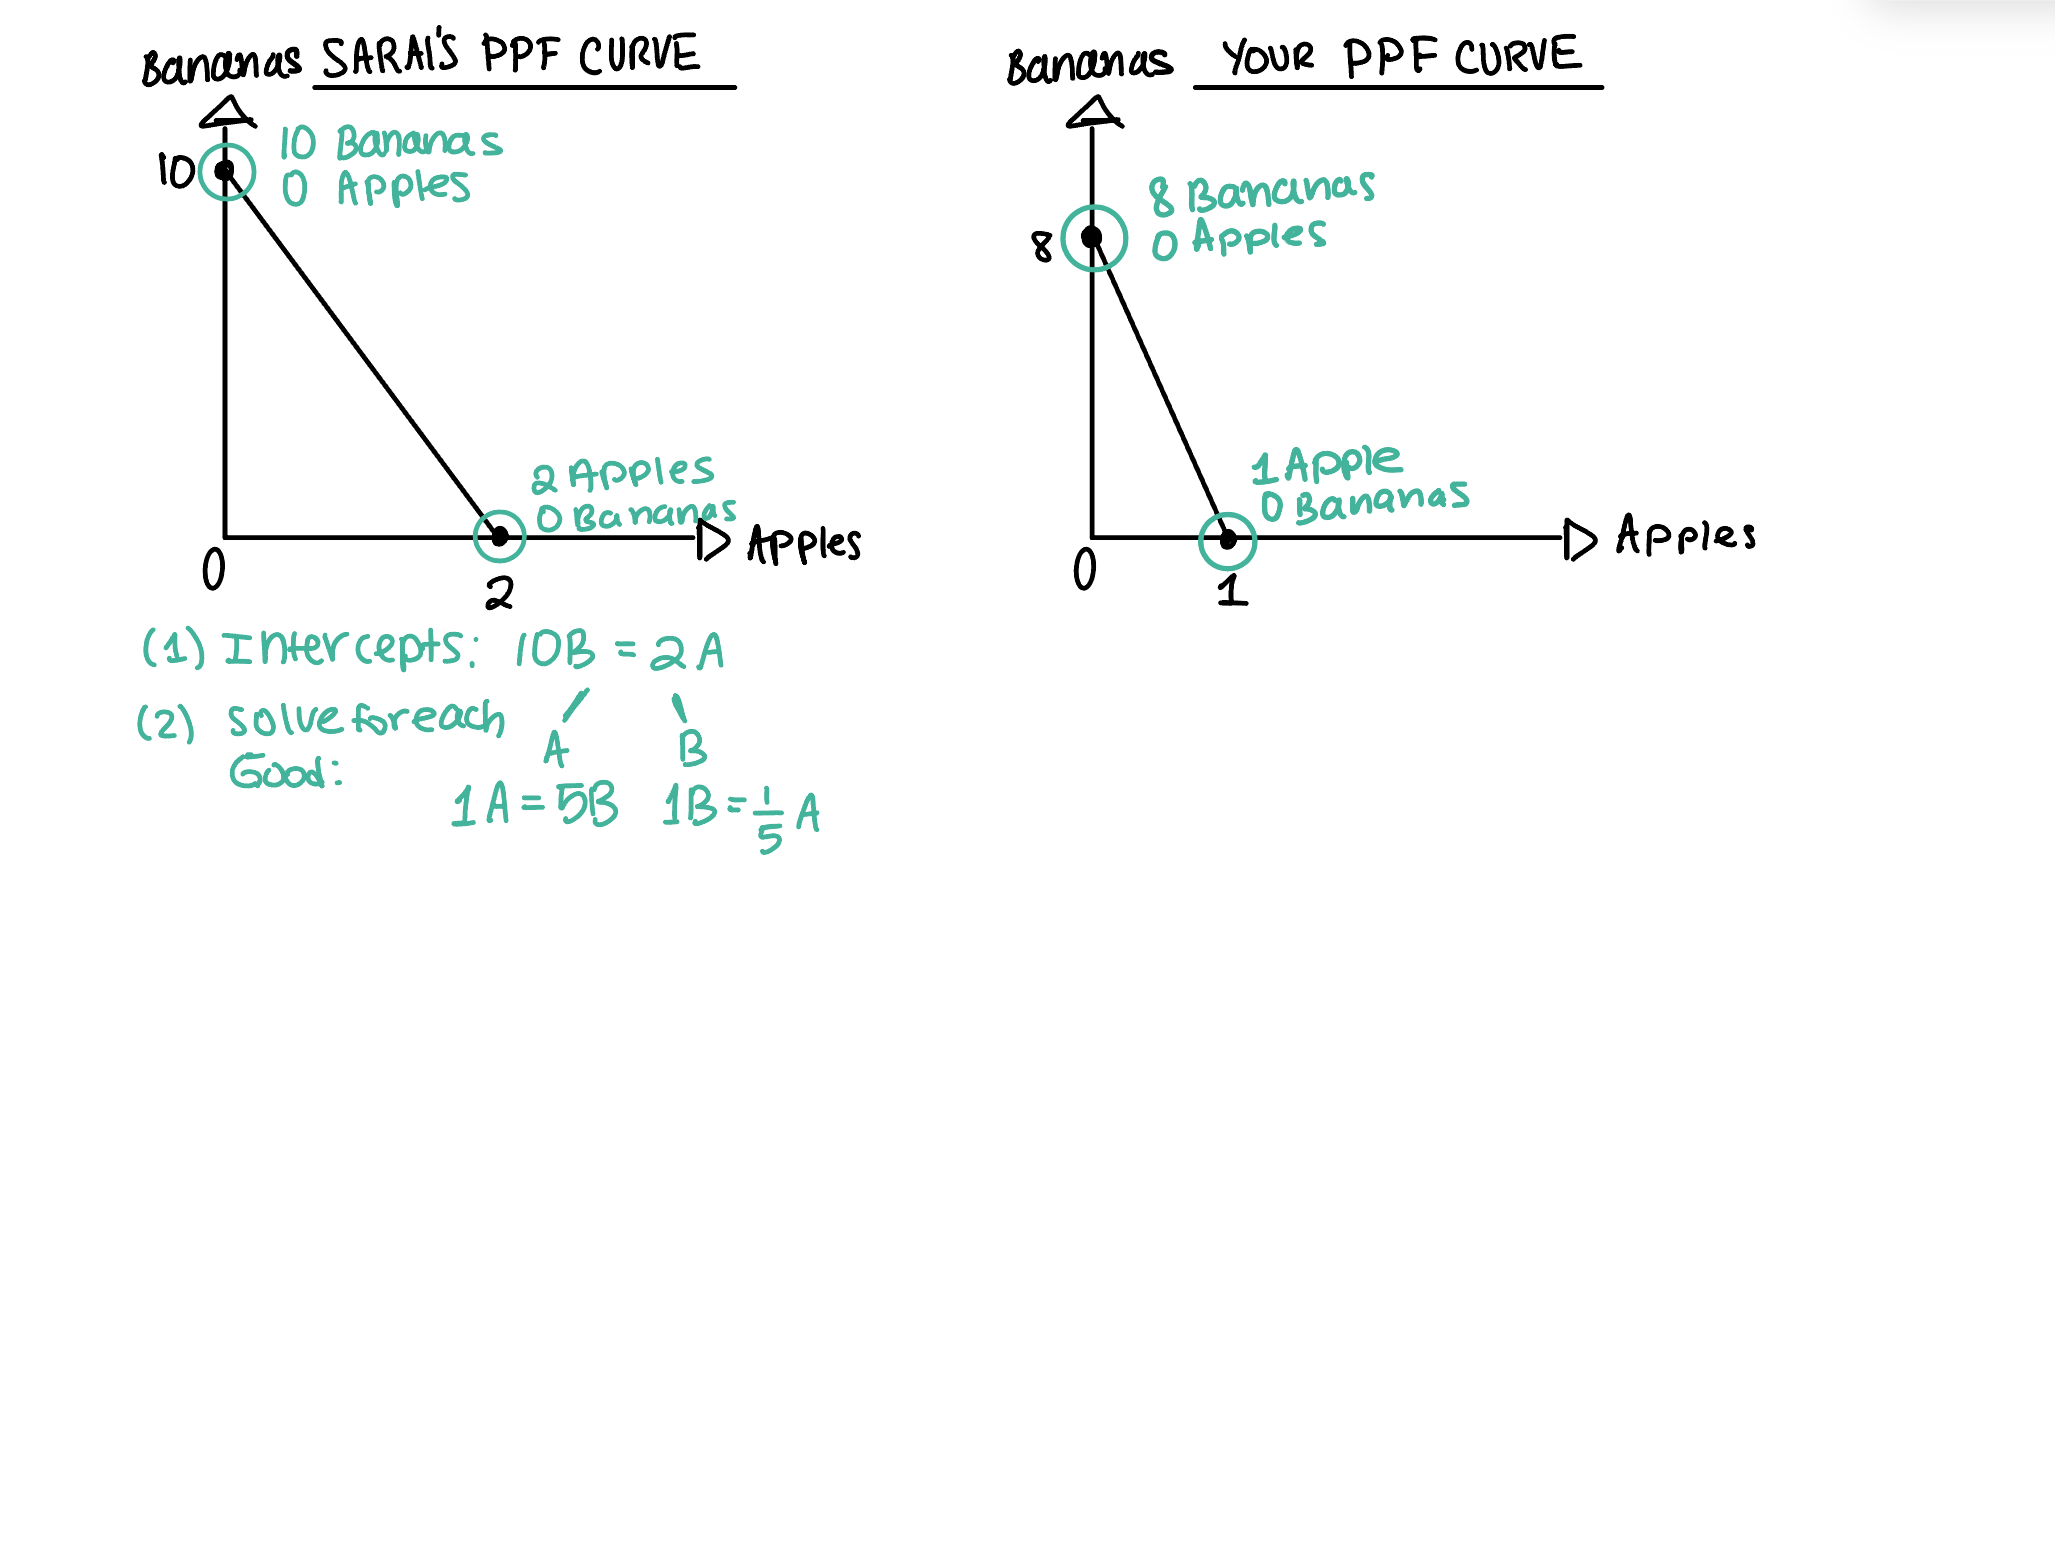 Bananas SARAI'S PPF CURVE
10 10 Bananas
0 Apples
2 Apples
0 Bananas
Apples
0 2
(1) Intercepts: 10B = 2A
(2) solve for each
A B
Good:
1A = 5B 1B = 1/5 A
Bananas YOUR PPF CURVE
8 Bananas
8 0 Apples
1 Apple
0 Bananas
Apples
0 1